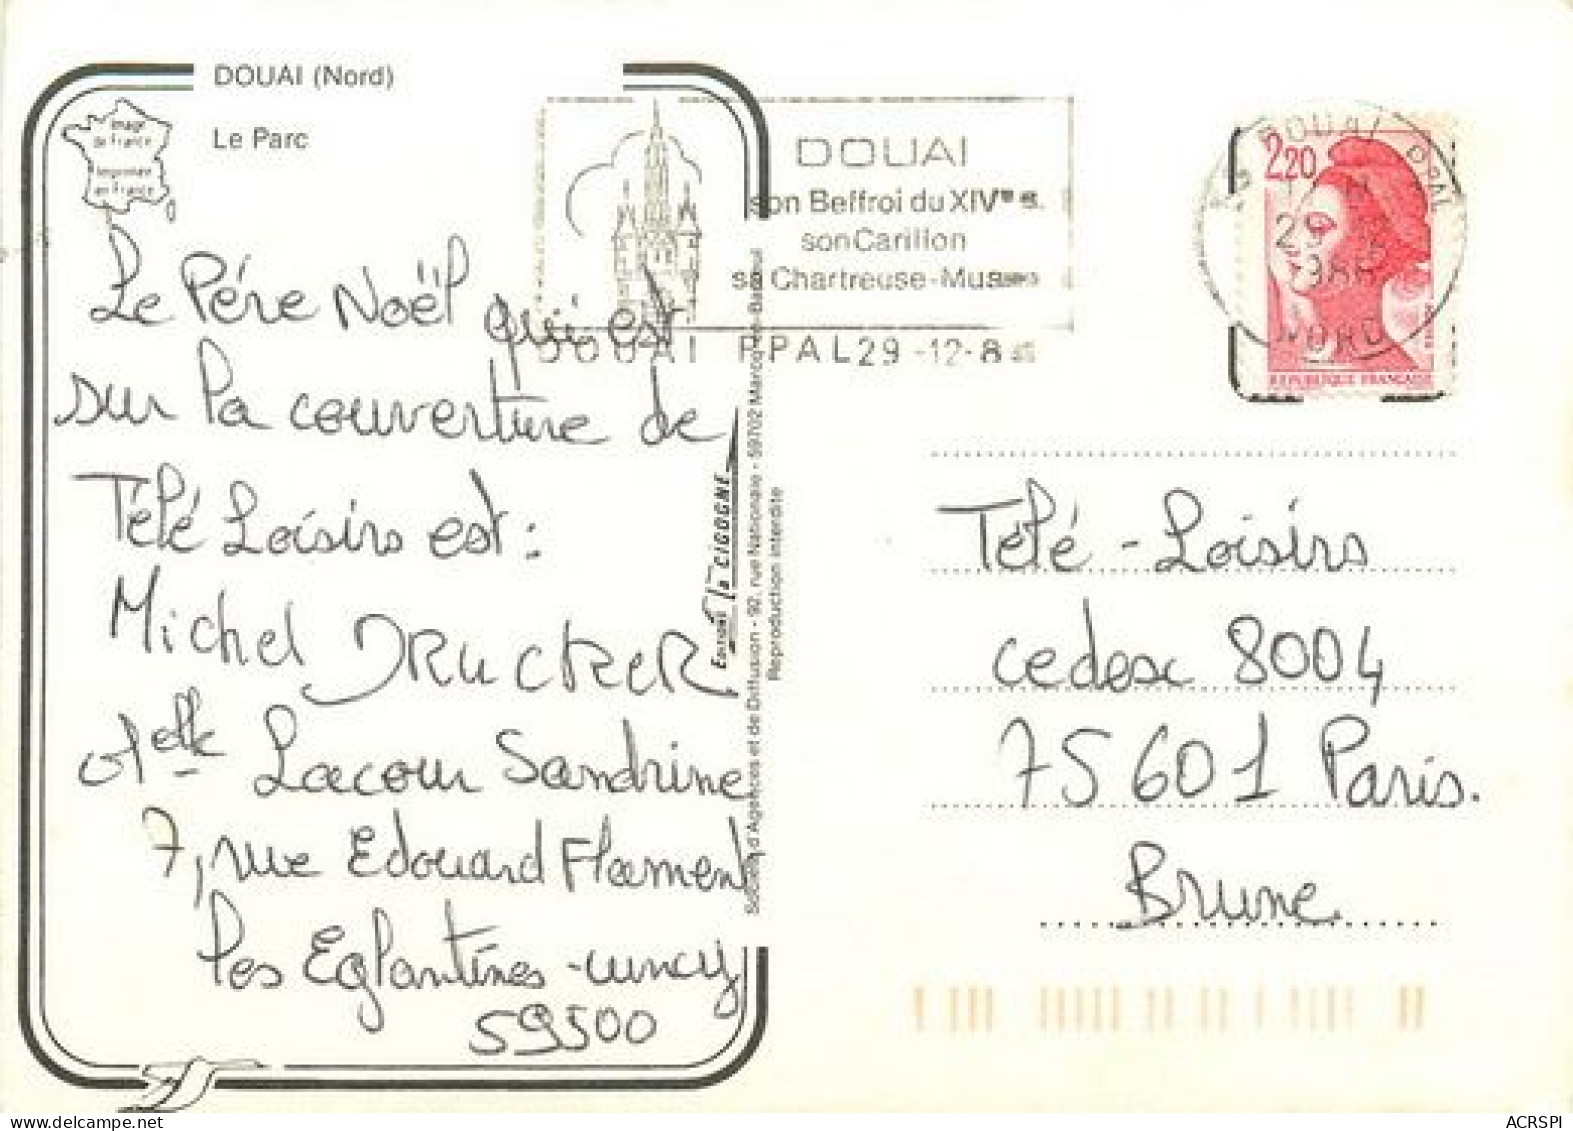 DOUAI (Nord)
Le Parc
Image
de France
Imprimée
en France
DOUAI
son Beffroi du XIVe s.
son Carillon
sa Chartreuse-Musée
DOUAI PPAL 29-12-8
2,20
REPUBLIQUE FRANÇAISE
DOUAI PPAL
29
NORD
Le Pére Noël qui est
sur la couverture de
Télé Loisirs est :
Michel DRUCKER
Melle Lacour Sandrine
7, rue Edouard Flament
les Eglantines - cuincy
59500
EDITIONS la CIGOGNE
Société d'Agences et de Diffusion - 92, rue Nationale - 59702 Marcq-en-Barœul
Reproduction interdite
Télé - Loisirs
cedex 8004
75601 Paris.
Brune
ACRSPI